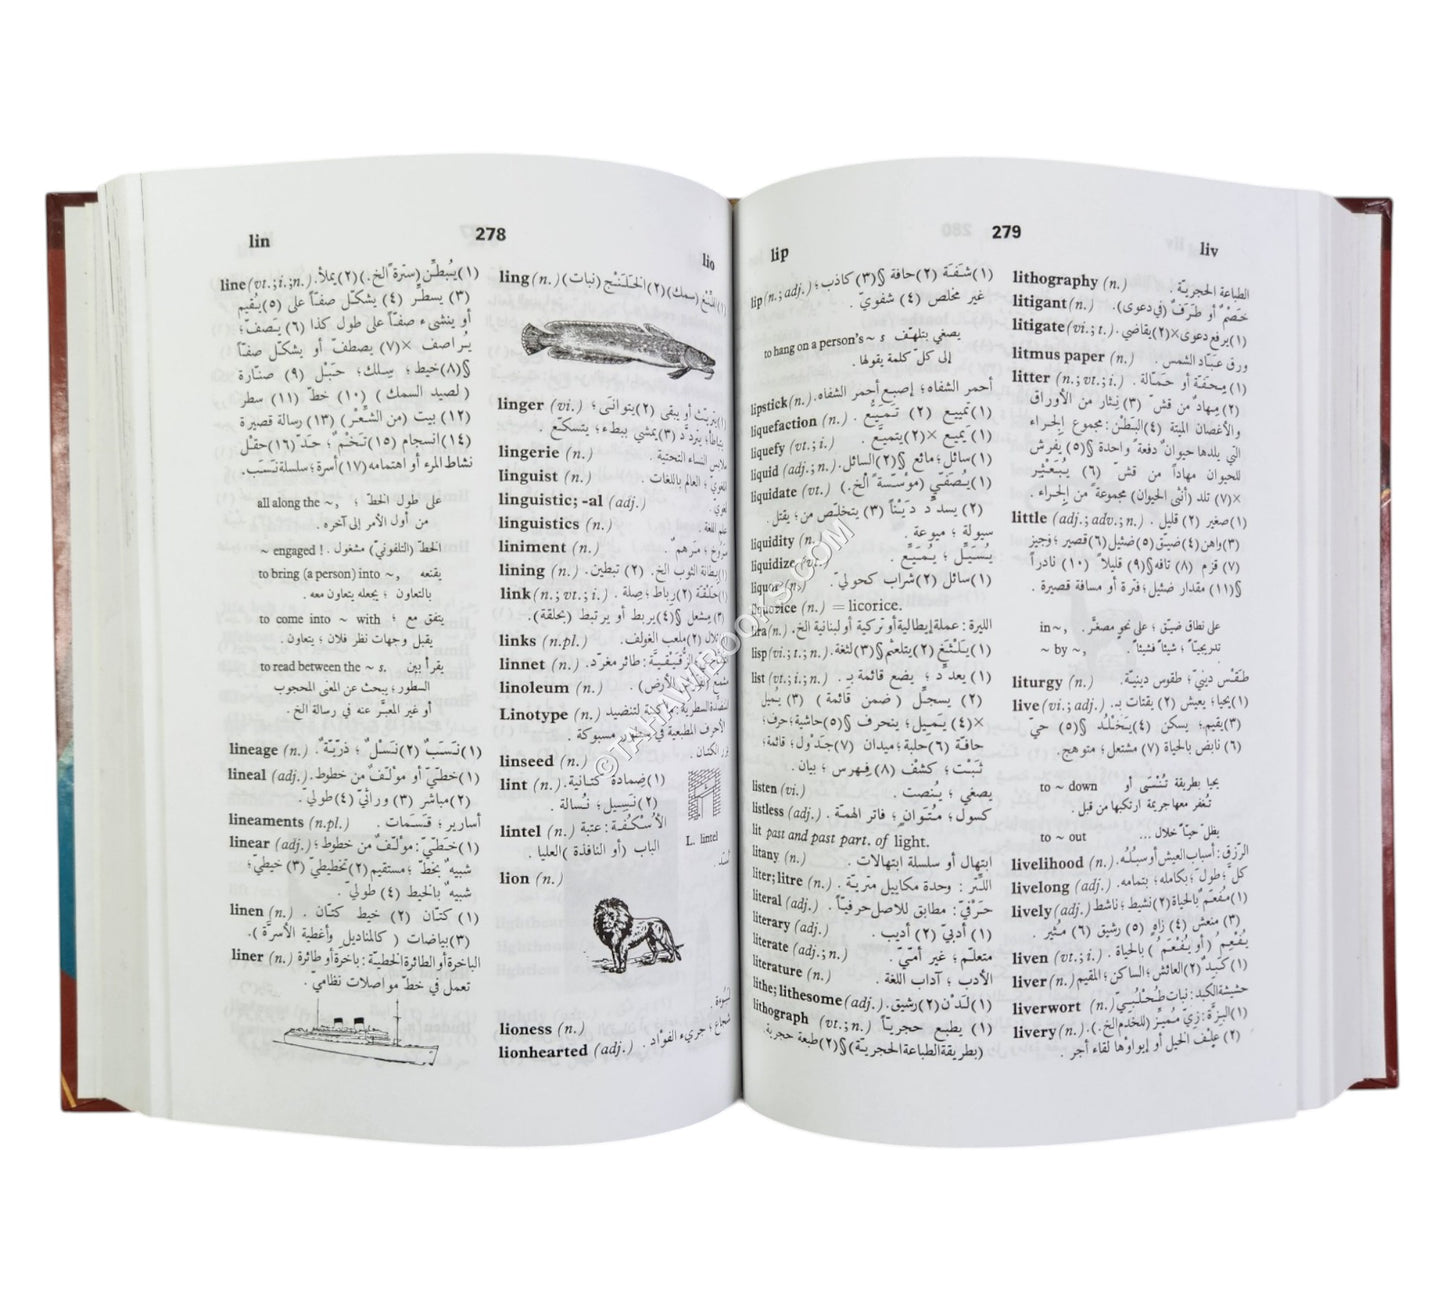 lin
278
lio
line (vt.; i.; n.) (١) يُبطِّن (سترةً الخ.) (٢) يملأ.
(٣) يسطِّر (٤) يشكّل صفّاً على (٥) يُقيم
أو ينشىء صفّاً على طول كذا (٦) يَصفّ؛
يراصف ×(٧) يصطفّ أو يشكّل صفّاً
§(٨) خيط؛ سِلك؛ حَبْل (٩) صنّارة
(لصيد السمك) (١٠) خطّ (١١) سطر
(١٢) بيت (من الشِّعْر) (١٣) رسالة قصيرة
(١٤) انسجام (١٥) تَخْم؛ حدّ (١٦) حقْل
نشاط المرء أو اهتمامه (١٧) أسرة؛ سلسلة نَسَب.
all along the ~, على طول الخطّ؛
من أول الأمر إلى آخره.
~ engaged ! الخطّ (التلفونيّ) مشغول.
to bring (a person) into ~, يقنعه
بالتعاون؛ يجعله يتعاون معه.
to come into ~ with يتفق مع؛
يقبل وجهات نظر فلان؛ يتعاون.
to read between the ~ s. يقرأ بين
السطور؛ يبحث عن المعنى المحجوب
أو غير المعبَّر عنه في رسالة الخ.
lineage (n.) (١) نَسَبٌ (٢) نَسْلٌ؛ ذرّيّةٌ.
lineal (adj.) (١) خطّيّ أو مؤلّف من خطوط.
(٢) مباشر (٣) وراثيّ (٤) طوليّ.
lineaments (n.pl.) أسارير؛ قَسَمات.
linear (adj.) (١) خطّيّ: مؤلّف من خطوط؛
شبيهٌ بخطّ؛ مستقيم (٢) تخطيطيّ (٣) خيطيّ؛
شبيهٌ بالخيط (٤) طوليّ.
linen (n.) (١) كتّان (٢) خيط كتّان.
(٣) بياضات (كالمناديل وأغطية الأسرّة).
liner (n.) الباخرة أو الطائرة الخطيّة: باخرة أو طائرة
تعمل في خطّ مواصلات نظاميّ.
ling (n.) (سمك) (٢) الخَلَنْج (نبات)
linger (vi.) (١) يتريّث أو يبقى (٢) يتوانى؛
يتباطأ؛ يتردّد (٣) يمشي ببطء؛ يتسكّع.
lingerie (n.) ملابس النساء التحتية.
linguist (n.) اللغويّ؛ العالم باللغات.
linguistic; -al (adj.) لغويّ.
linguistics (n.) علم اللغة.
liniment (n.) مَرُوخ؛ مَرهم.
lining (n.) (١) بطانة الثوب الخ. (٢) تبطين.
link (n.; vt.; i.) (١) حَلْقَة (٢) رباط؛ صِلة.
(٣) مشعل §(٤) يربط أو يرتبط (بحلقة).
links (n.pl.) (٢) ملعب الغولف.
linnet (n.) الزُّقَيْقيّة: طائر مغرّد.
linoleum (n.) مشمّع
Linotype (n.) لتنضيد
الأحرف المطبعية في سطور مسبوكة.
linseed (n.) بزر الكتّان.
lint (n.) (١) ضِمادة كتّانية.
(٢) نَسيل؛ نُسالة.
lintel (n.) الأُسْكُفّة: عتبة
الباب (أو النافذة) العليا.
L. lintel
lion (n.) أسد.
lioness (n.) لَبُؤة.
lionhearted (adj.) شجاع؛ جريء الفؤاد.
lip
279
liv
lip (n.; adj.) (١) شَفَة (٢) حافة §(٣) كاذب؛
غير مخلص (٤) شفويّ.
to hang on a person's ~ s يصغي بتلهّف
إلى كلّ كلمة يقولها.
lipstick (n.) أحمر الشفاه؛ إصبع أحمر الشفاه.
liquefaction (n.) (١) تمييع (٢) تَمَيُّع.
liquefy (vt.; i.) (١) يميّع ×(٢) يتميّع.
liquid (adj.; n.) (١) سائل؛ مائع §(٢) السائل.
liquidate (vt.) (١) يُصَفّي (مؤسّسةً الخ.)
(٢) يسدّد دَيْناً (٣) يتخلّص من؛ يقتل.
liquidity (n. سيولة؛ ميوعة.
liquidize (vt.) يُسَيِّل؛ يُمَيِّع.
liquor (n.) (١) سائل (٢) شراب كحوليّ.
liquorice (n.) = licorice.
lira (n.) الليرة: عملة إيطالية أو تركية أو لبنانية الخ.
lisp (vi.; t.; n.) (١) يَلْثَغ (٢) يتلعثم §(٣) لثغة.
list (vt.; i.; n.) (١) يعدّد؛ يضع قائمة بـ
(٢) يسجّل (ضمن قائمة) (٣) يُميل
×(٤) يَميل؛ ينحرف §(٥) حاشية؛ حرف؛
حافّة (٦) حلبة؛ ميدان (٧) جَدْول؛ قائمة؛
ثَبْت؛ كشْف (٨) فِهرس؛ بيان.
listen (vi.) يصغي؛ يُنصت.
listless (adj.) كسول؛ مُتَوانٍ؛ فاتر الهمّة.
lit past and past part. of light.
litany (n.) ابتهال أو سلسلة ابتهالات.
liter; litre (n.) اللِّتر: وحدة مكاييل مترية.
literal (adj.) حَرْفيّ: مطابق للأصل حرفيّاً.
literary (adj.) (١) أدبيّ (٢) أديب.
literate (adj.; n.) متعلّم؛ غير أميّ.
literature (n.) الأدب؛ آداب اللغة.
lithe; lithesome (adj.) (١) لَدْن (٢) رشيق.
lithograph (vt.; n.) (١) يطبع حجريّاً
(بطريقة الطباعة الحجريّة) §(٢) طبعة حجرية.
lithography (n.) الطباعة الحجريّة.
litigant (n.) خَصْمٌ أو طَرَفٌ (في دعوى).
litigate (vi.; t.) (١) يرفع دعوى ×(٢) يقاضي.
litmus paper (n.) ورق عبّاد الشمس.
litter (n.; vt.; i.) (١) مِحَفّة أو حَمّالة.
(٢) مِهادٌ من قشّ (٣) نِثار من الأوراق
والأغصان الميتة (٤) البَطْن: مجموع الجِراء
التي يلدها حيوان دفعةً واحدة §(٥) يفرش
للحيوان مهاداً من قشّ (٦) يُبَعْثِر
×(٧) تلد (أنثى الحيوان) مجموعةً من الجِراء.
little (adj.; adv.; n.) (١) صغير (٢) قليل.
(٣) واهن (٤) ضيّق (٥) ضئيل (٦) قصير؛ وجيز
(٧) قزم (٨) تافه §(٩) قليلاً (١٠) نادراً
§(١١) مقدار ضئيل؛ فترة أو مسافة قصيرة.
in ~, على نطاق ضيّق؛ على نحوٍ مصغَّر.
~ by ~, تدريجيّاً؛ شيئاً فشيئاً.
liturgy (n.) طَقْس دينيّ؛ طقوس دينيّة.
live (vi.; adj.) (١) يحيا؛ يعيش (٢) يقتات بـ
(٣) يقيم؛ يسكن (٤) يَخْلُد §(٥) حيّ
(٦) نابض بالحياة (٧) مشتعل؛ متوهج.
to ~ down يحيا بطريقة تُنْسَى أو
تُغفر معها جريمة ارتكبها من قبل.
to ~ out يظلّ حيّاً خلال ...
livelihood (n.) الرزق: أسباب العيش أو سبلُه.
livelong (adj.) كلّ؛ طولَ؛ بكامله؛ بتمامه.
lively (adj.) (١) مُفعَم بالحياة (٢) نشيط؛ ناشط
(٣) منعش (٤) زاهٍ (٥) رشيق (٦) مُثير.
liven (vt.; i.) يُفْعِم (أو يُفْعَم) بالحياة.
liver (n.) (١) كَبِد (٢) العائش؛ الساكن؛ المقيم
liverwort (n.) حشيشة الكبد: نبات طُحْلُبيّ
livery (n.) (١) البِزّة: زيّ مُميَّز (للخدم الخ.).
(٢) عَلْف الخيل أو إيواؤها لقاء أجر.